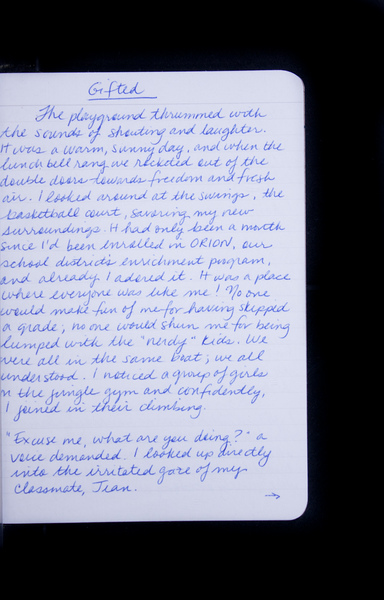 Gifted
The playground thrummed with
the sounds of shouting and laughter.
It was a warm, sunny day, and when the
lunch bell rang we rocketed out of the
double doors towards freedom and fresh
air. I looked around at the swings, the
basketball court, savoring my new
surroundings. It had only been a month
since I'd been enrolled in ORION, our
school district's enrichment program,
and already I adored it. It was a place
where everyone was like me! No one
would make fun of me for having skipped
a grade; no one would shun me for being
lumped with the "nerdy" kids. We
were all in the same boat; we all
understood. I noticed a group of girls
n the jungle gym and confidently,
I joined in their climbing.
"Excuse me, what are you doing?" a
voice demanded. I looked up directly
into the irritated gaze of my
classmate, Jean.
→